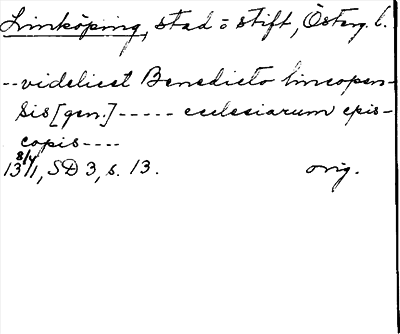 Linköping, stad o stift, Österg. l.
-- videlicet Benedicto lincopen-
sis [gen.] ----- ecclesiarum epis-
copis ----
13 8/4 11, SD 3, s. 13. orig.